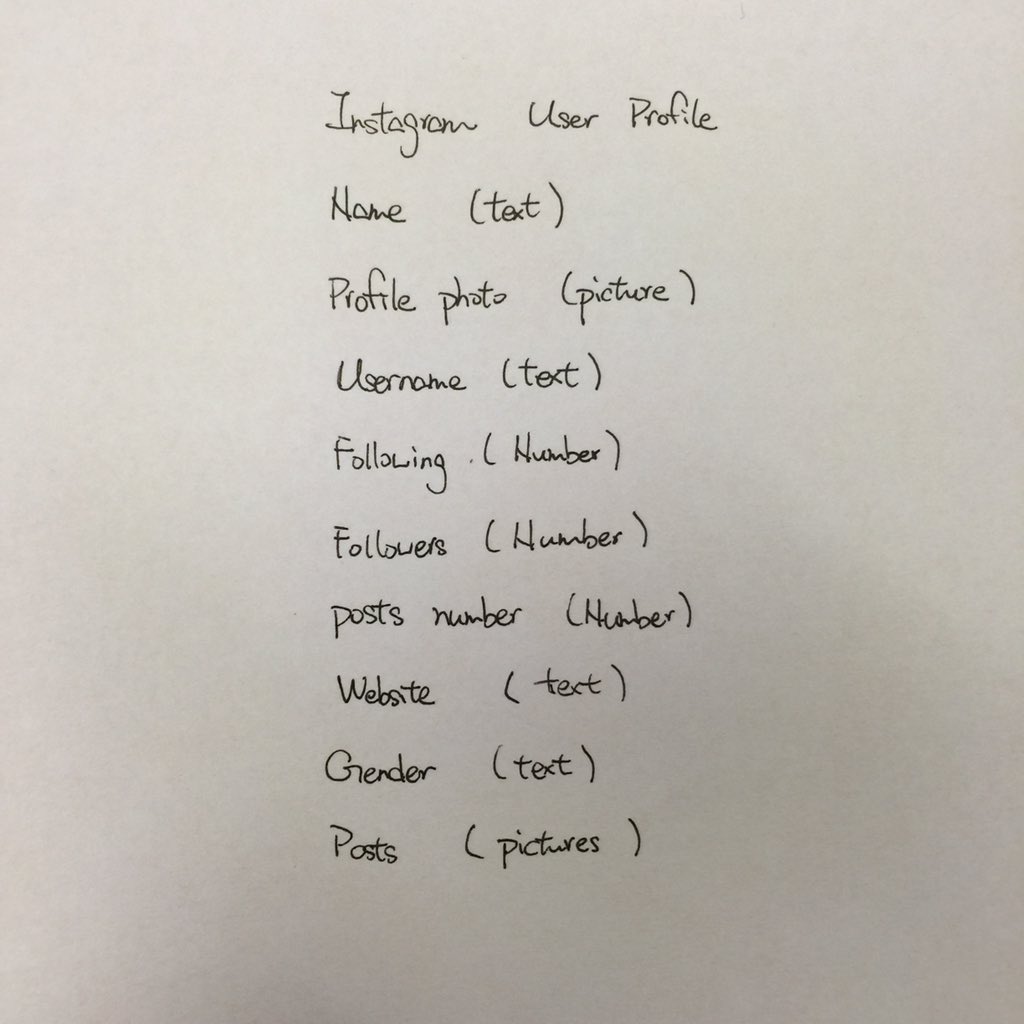 Instagram User Profile
Name (text)
Profile photo (picture)
Username (text)
Following (Number)
Followers (Number)
posts number (Number)
Website (text)
Gender (text)
Posts (pictures)